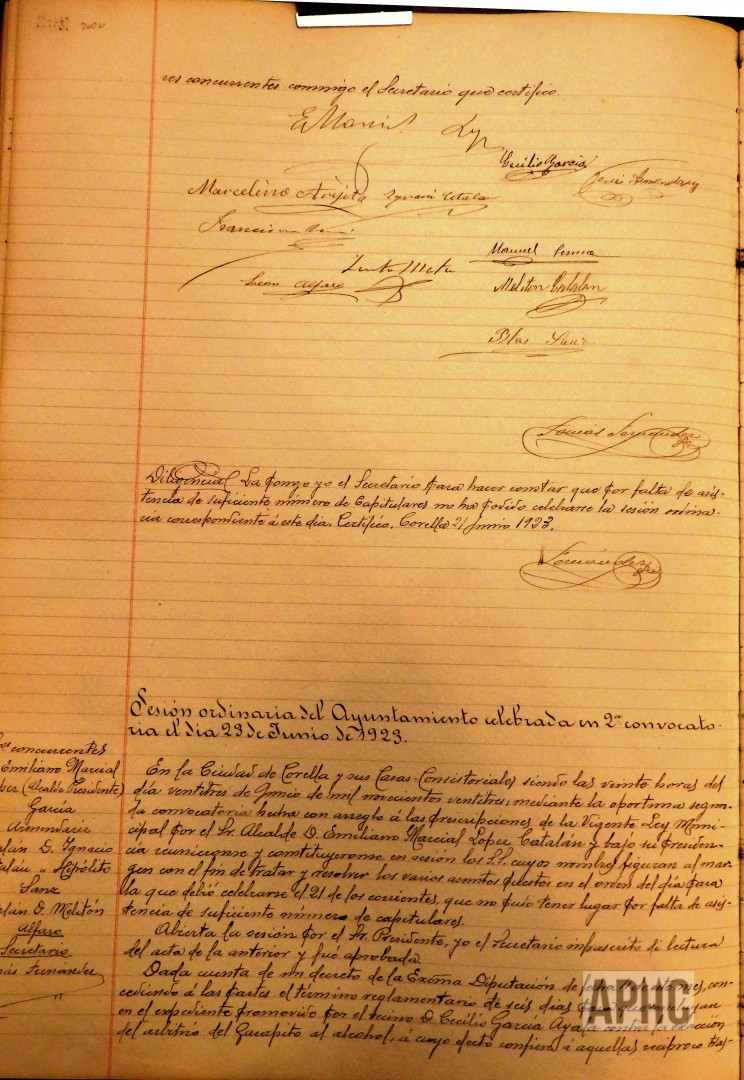 res concurrentes conmigo el Secretario que certifico.
Cecilio Garcia
Jesús Armendariz
Marcelino Arijita Ignacio Catalán
Francisco
Manuel
Justo Mateo
León Alfaro
Meliton Catalan
Blas Sanz
Tomás Fernández
Diligencia/ La pongo yo el Secretario para hacer constar que por falta de asis-
tencia de suficiente número de Capitulares no ha podido celebrarse la sesión ordina-
ria correspondiente á este dia. Certifico. Corella 21 Junio 1923.
Fernández
Sesión ordinaria del Ayuntamiento celebrada en 2ª convocato-
ria el dia 23 de Junio de 1923.
concurrentes
Emiliano Marcial
(Alcalde Presidente)
García
Armendariz
D. Ignacio
" Hipólito
Sanz
D. Melitón
Alfaro
Secretario
Fernández
En la Ciudad de Corella y sus Casas-Consistoriales siendo las veinte horas del
dia veintitres de Junio de mil novecientos veintitres; mediante la oportuna segun-
da convocatoria hecha con arreglo á las prescripciones de la Vigente Ley Muni-
cipal por el Sr. Alcalde D. Emiliano Marcial Lopez Catalán y bajo su Presiden-
cia reunieronse y constituyeronse en sesión los S.S. cuyos nombres figuran al mar-
gen con el fin de tratar y resolver los varios asuntos puestos en el orden del dia para
la que debió celebrarse el 21 de los corrientes, que no pudo tener lugar por falta de asis-
tencia de suficiente número de capitulares.
Abierta la sesión por el Sr. Presidente, yo el Secretario infrascrito di lectura
del acta de la anterior y fué aprobada.
Dada cuenta de un decreto de la Excma Diputación de con-
cediendo á las partes el término reglamentario de seis dias
en el expediente promovido por el vecino D. Cecilio Garcia Ayala contra la exacción
del arbitrio del Gurapito al alcohol, á cuyo efecto confiera á aquellas reciproco tras-
APHC